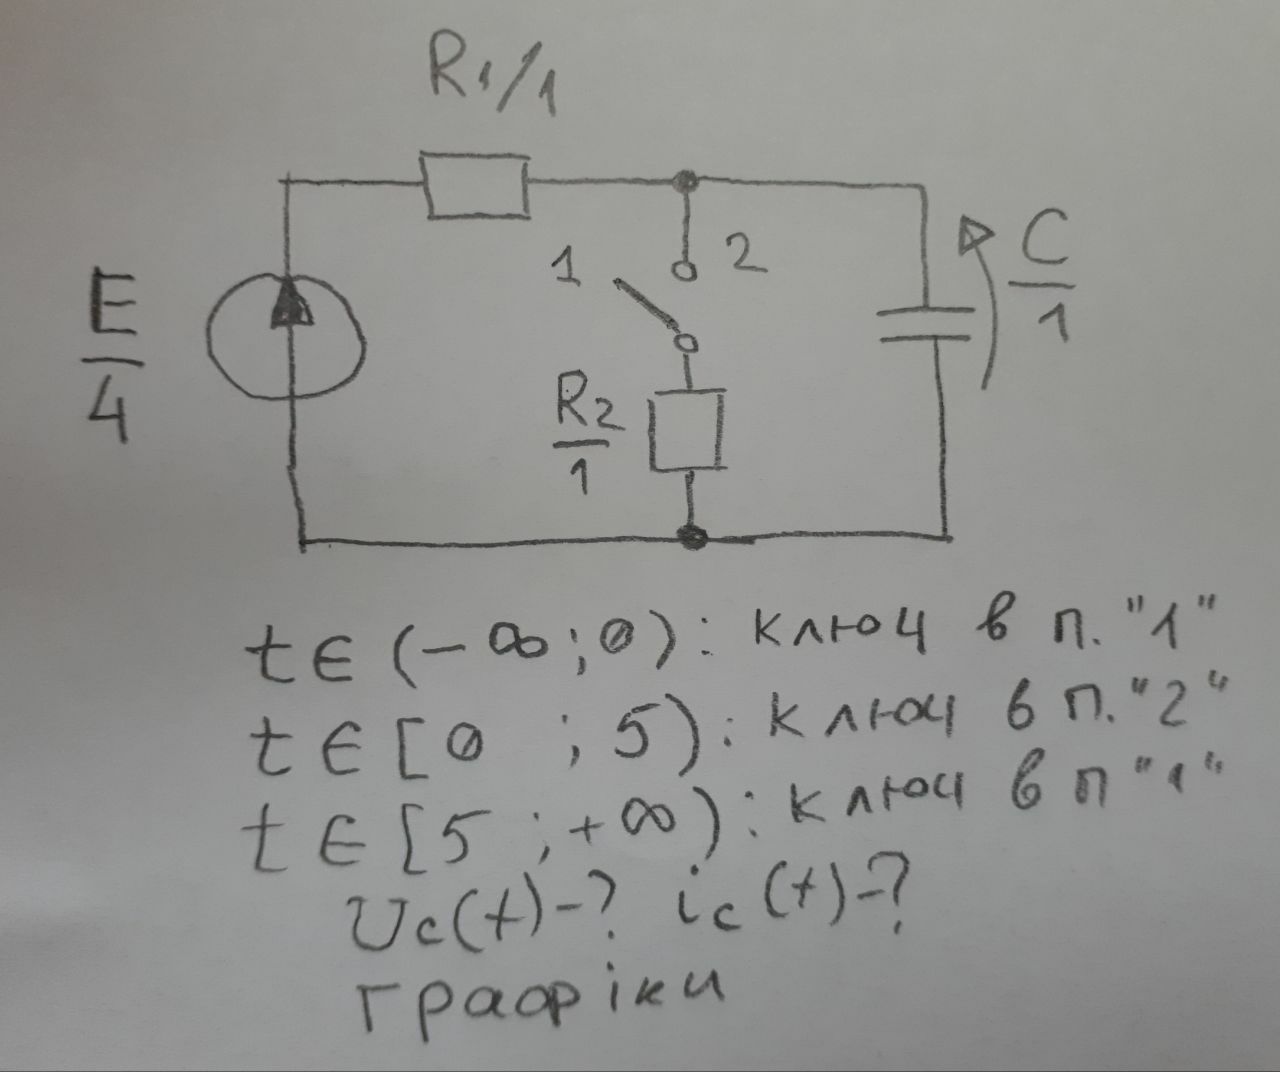 R1/1
1
2
E
4
C
1
R2
1
t∈(-∞;0): ключ в п. "1"
t∈[0 ; 5): ключ в п. "2"
t∈[5 ;+∞): ключ в п "1"
Uc(t)-? ic(t)-?
графіки